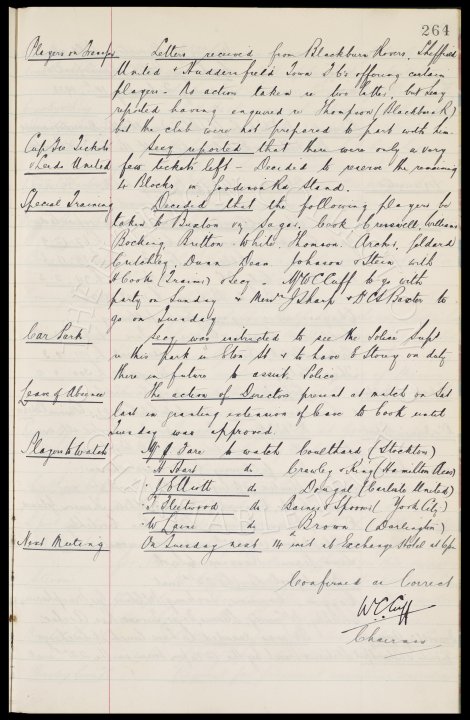 264
Players on Transfer Letters received from Blackburn Rovers, Sheffield
United & Huddersfield Town F Cs offering certain
players - No action taken re two latter, but Secy
reported having enquired re Thompson (Blackburn R)
but the club were not prepared to part with him.
Cup Tie Tickets Secy reported that there were only a very
v Leeds United few tickets left - Decided to reserve the remaining
4 Blocks in Goodison Rd Stand.
Special Training Decided that the following players be
taken to Buxton viz Sagar, Cook Cresswell, Williams
Bocking, Britton White, Thomson Archer, Geldard
Critchley, Dunn Dean Johnson & Stein with
H Cooke (Trainer) & Secy - Mr W C Cuff to go with
party on Sunday & Messrs J Sharp & A C S Baxter to
go on Tuesday
Car Park Secy was instructed to see the Police Supt
re this park in Eton St & to have E Storey on duty
there in future to assist Police
Leave of Absence The action of Directors present at match on Sat
last in granting extension of leave to Cook until
Tuesday was approved.
Players to Watch Mr J Fare to watch Coulthard (Stockton)
" H Hart do Crawley & King (Hamilton Acas)
" J Elliott do Dougal (Carlisle United)
" T Fleetwood do Baines & Spooner (York City)
" W Laird do Brown (Darlington)
Next Meeting On Tuesday next 14 inst at Exchange Hotel at 6pm
Confirmed as Correct
W. C. Cuff
Chairman